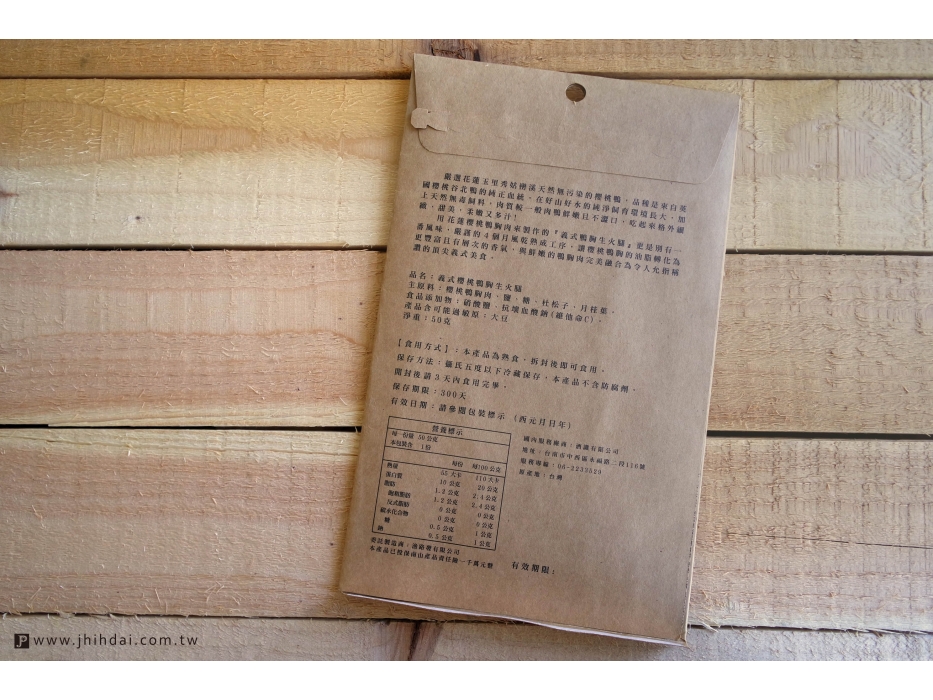 嚴選花蓮玉里秀姑巒溪天然無污染的櫻桃鴨，品種是來自英
國櫻桃谷北鴨的純正血統，在好山好水的純淨飼育環境長大，加
上天然無毒飼料，肉質較一般肉鴨鮮嫩且不澀口，吃起來格外纖
細、甜美、柔嫩又多汁！
用花蓮櫻桃鴨胸肉來製作的『義式鴨胸生火腿』更是別有一
番風味，嚴謹的4個月風乾熟成工序，讓櫻桃鴨胸的油脂轉化為
更豐富且有層次的香氣，與鮮嫩的鴨胸肉完美融合為令人允指稱
讚的頂尖義式美食。
品名：義式櫻桃鴨胸生火腿
主原料：櫻桃鴨胸肉、鹽、糖、杜松子、月桂葉。
食品添加物：硝酸鹽、抗壞血酸鈉(維他命C)。
產品含可能過敏原：大豆
淨重：50克
【食用方式】：本產品為熟食，拆封後即可食用。
保存方法：攝氏五度以下冷藏保存，本產品不含防腐劑。
開封後請3天內食用完畢。
保存期限：300天
有效日期：請參閱包裝標示 (西元月日年)
營養標示
每一份量 50公克
本包裝含 1份
每份 每100公克
熱量 55大卡 110大卡
蛋白質 10公克 20公克
脂肪 1.2公克 2.4公克
飽和脂肪 1.2公克 2.4公克
反式脂肪 0公克 0公克
碳水化合物 0公克 0公克
糖 0.5公克 1公克
鈉 0.5公克 1公克
國內服務廠商：酒議有限公司
地址：台南市中西區永福路二段116號
服務專線：06-2232529
原產地：台灣
委託製造商：
有限公司
本產品已投保南山產品責任險一千萬元整
有效期限：
www.jhihdai.com.tw